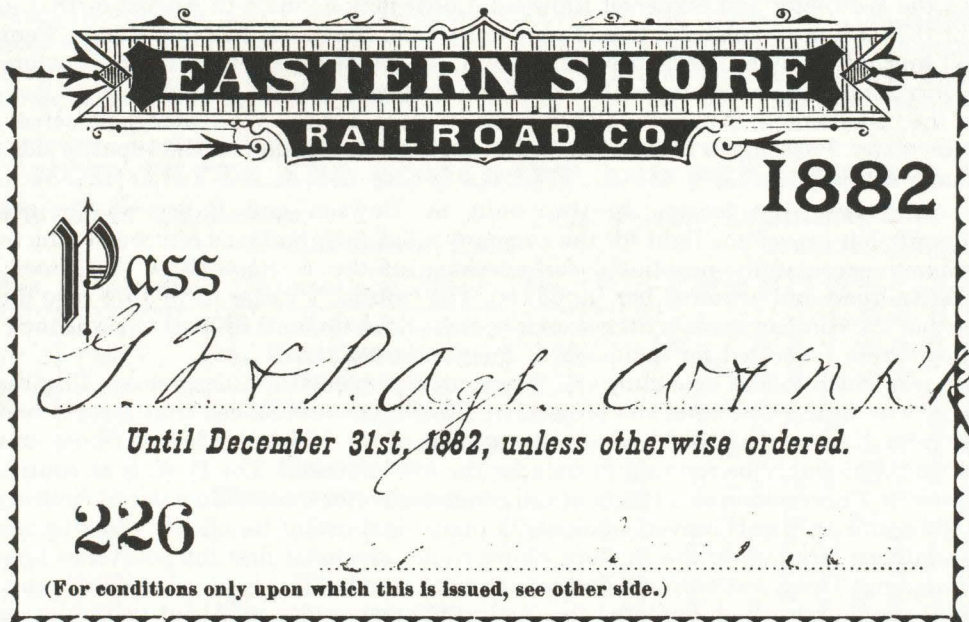 EASTERN SHORE
RAILROAD CO.
1882
Pass
G. F. & P. Agt
Until December 31st, 1882, unless otherwise ordered.
226
(For conditions only upon which this is issued, see other side.)